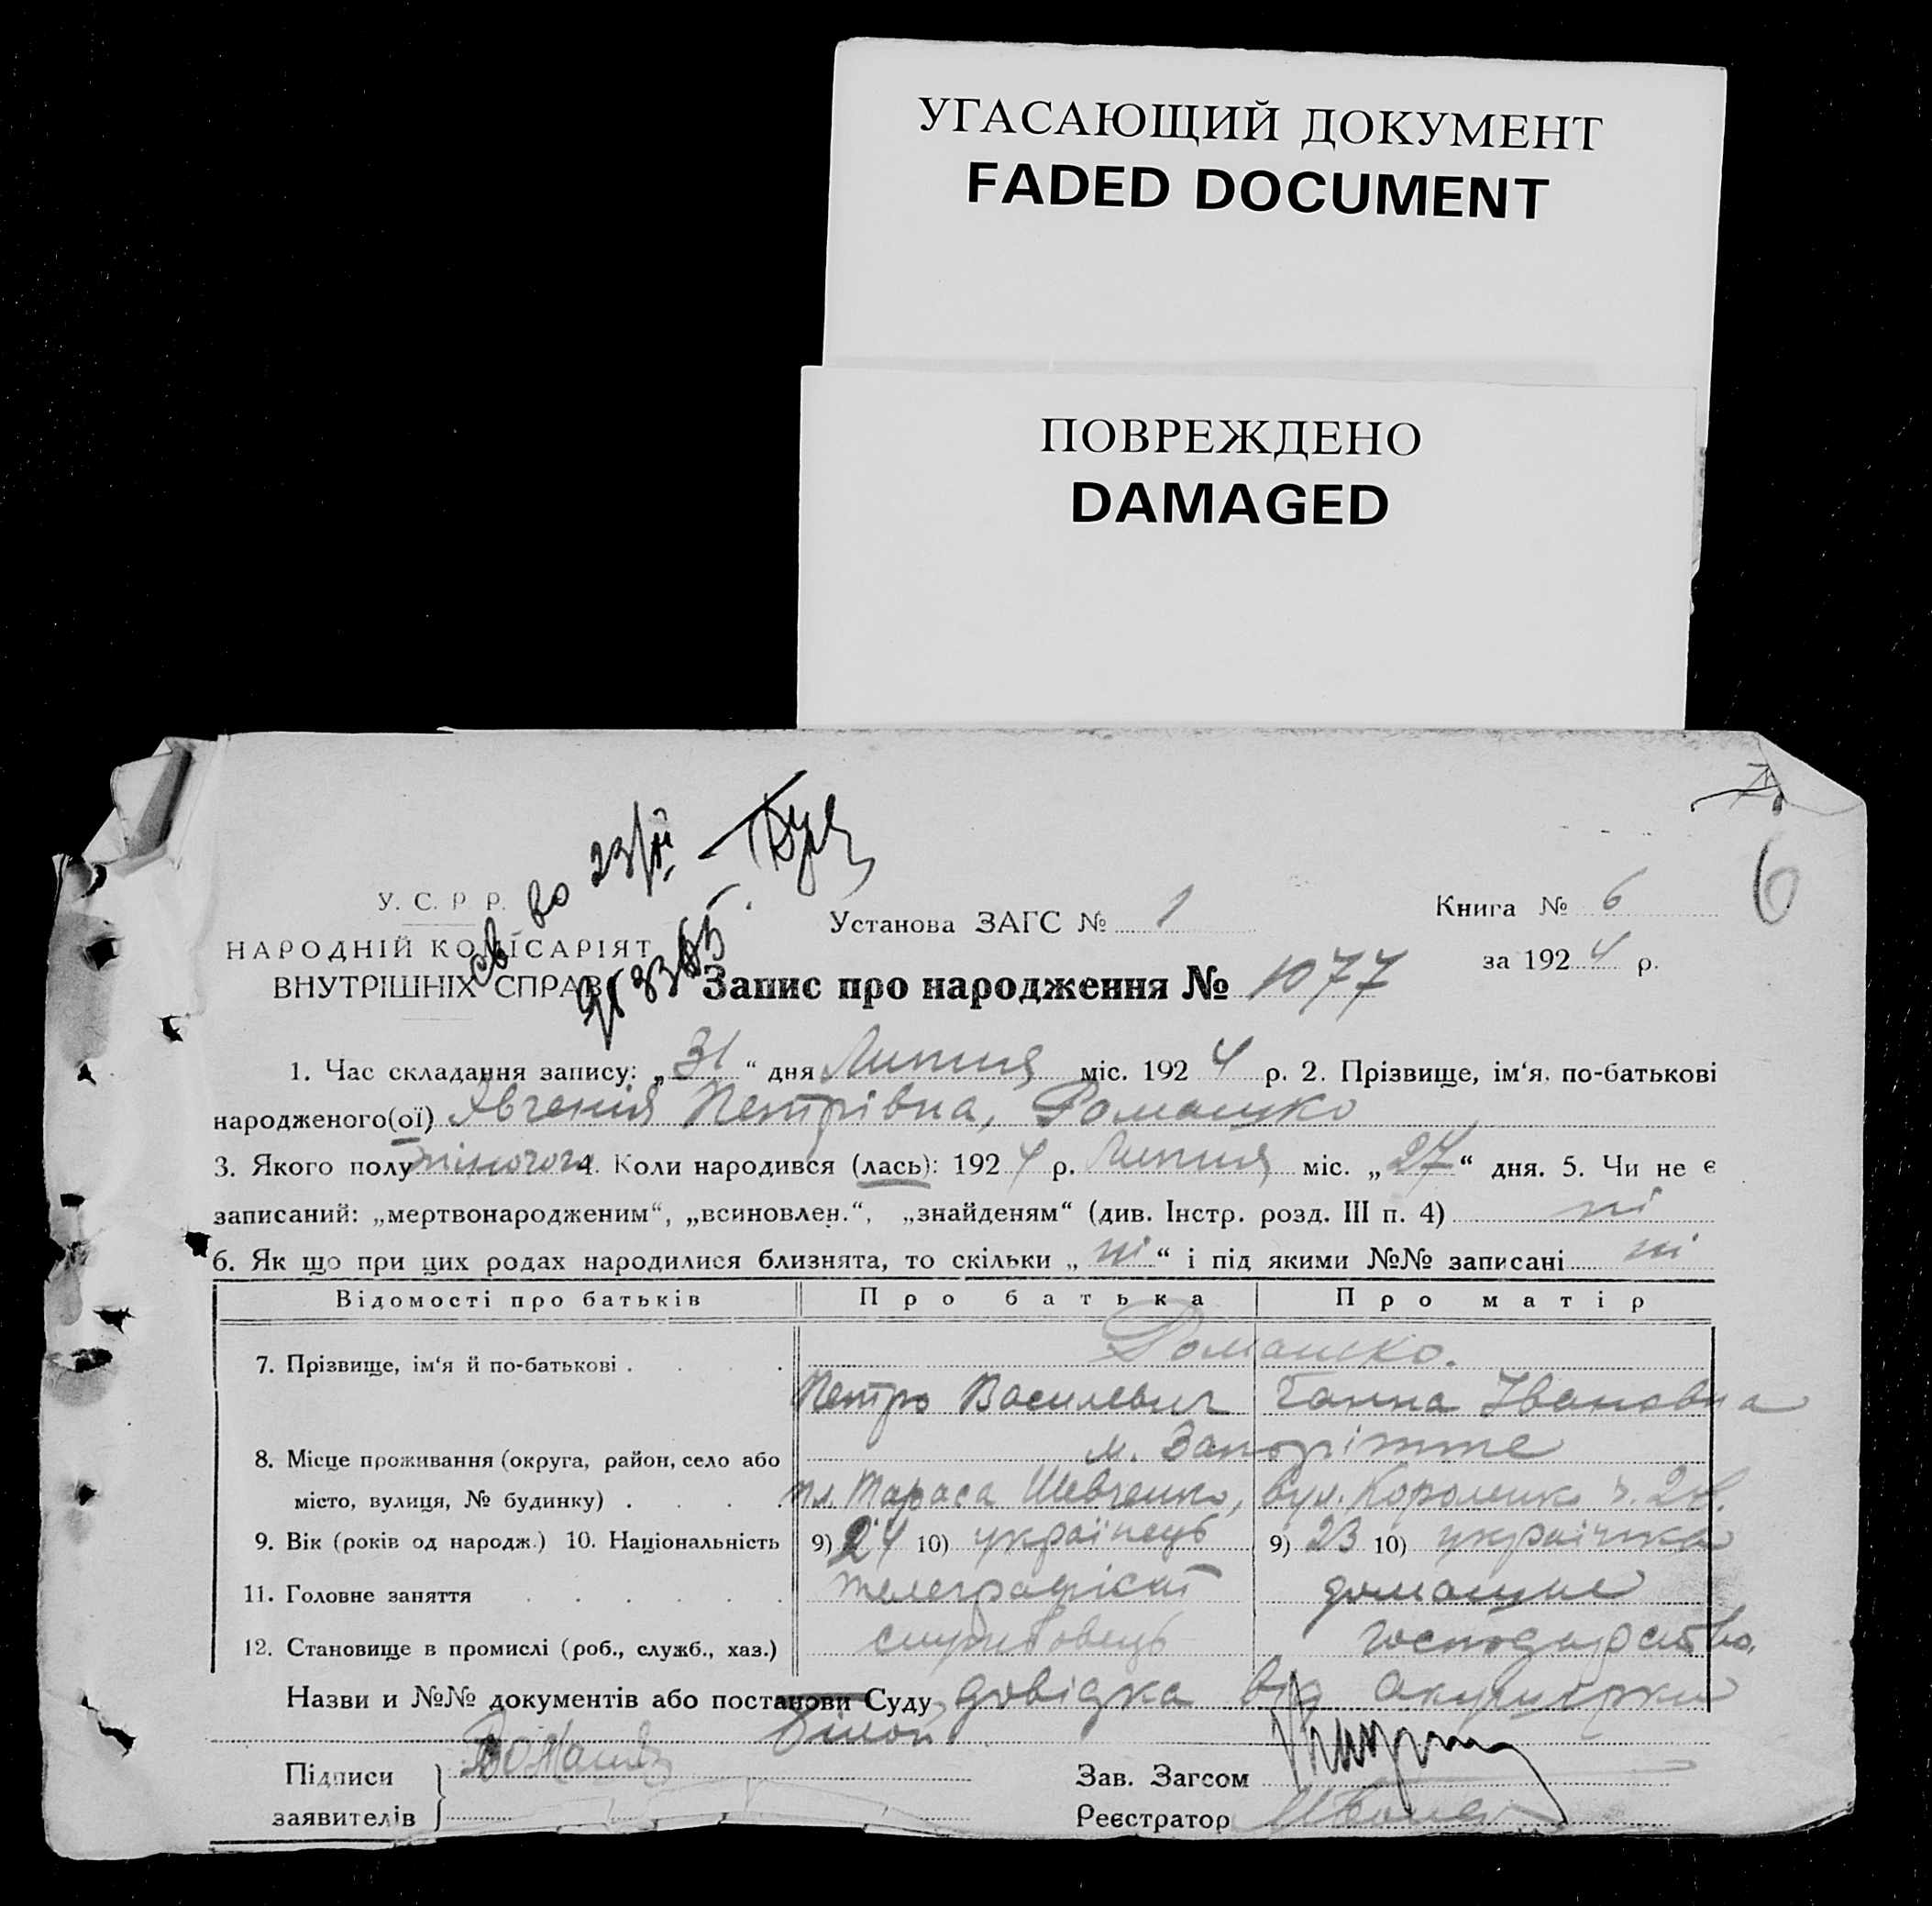 УГАСАЮЩИЙ ДОКУМЕНТ
FADED DOCUMENT
ПОВРЕЖДЕНО
DAMAGED
6
У. С. Р. Р.
НАРОДНІЙ КОМІСАРІЯТ
ВНУТРІШНІХ СПРАВ
св во 23/
Установа ЗАГС № 1
Книга № 6
за 1924 р.
Запис про народження № 1077
1. Час складання запису: „31“ дня Липня міс. 1924 р. 2. Прізвище, ім‘я, по-батькові
народженого(ої) Явгенія Петрівна, Ромашко
3. Якого полу жіночого 4. Коли народився (лась): 1924 р. Липня міс. „27“ дня. 5. Чи не є
записаний: „мертвонародженим“, „всиновлен.“, „знайденям“ (див. Інстр. розд. III п. 4) ні
6. Як що при цих родах народилися близнята, то скільки „ні“ і під якими №№ записані ні
Відомості про батьків Про батька Про матір
7. Прізвище, ім‘я й по-батькові . . . . Ромашко.
Петро Василевич Ганна Івановна
8. Місце проживання (округа, район, село або м. Запоріжже
місто, вулиця, № будинку) . . . . пл. Тараса Шевченко, вул.
9. Вік (років од народж.) 10. Національність 9) 24 10) українець 9) 23 10) українка
11. Головне заняття . . . . . . телеграфіст домашнє
12. Становище в промислі (роб., служб., хаз.) службовець господарство.
Назви и №№ документів або постанови Суду довідка від акушерки
Підписи Ромашко Зав. Загсом
заявителів Реєстратор